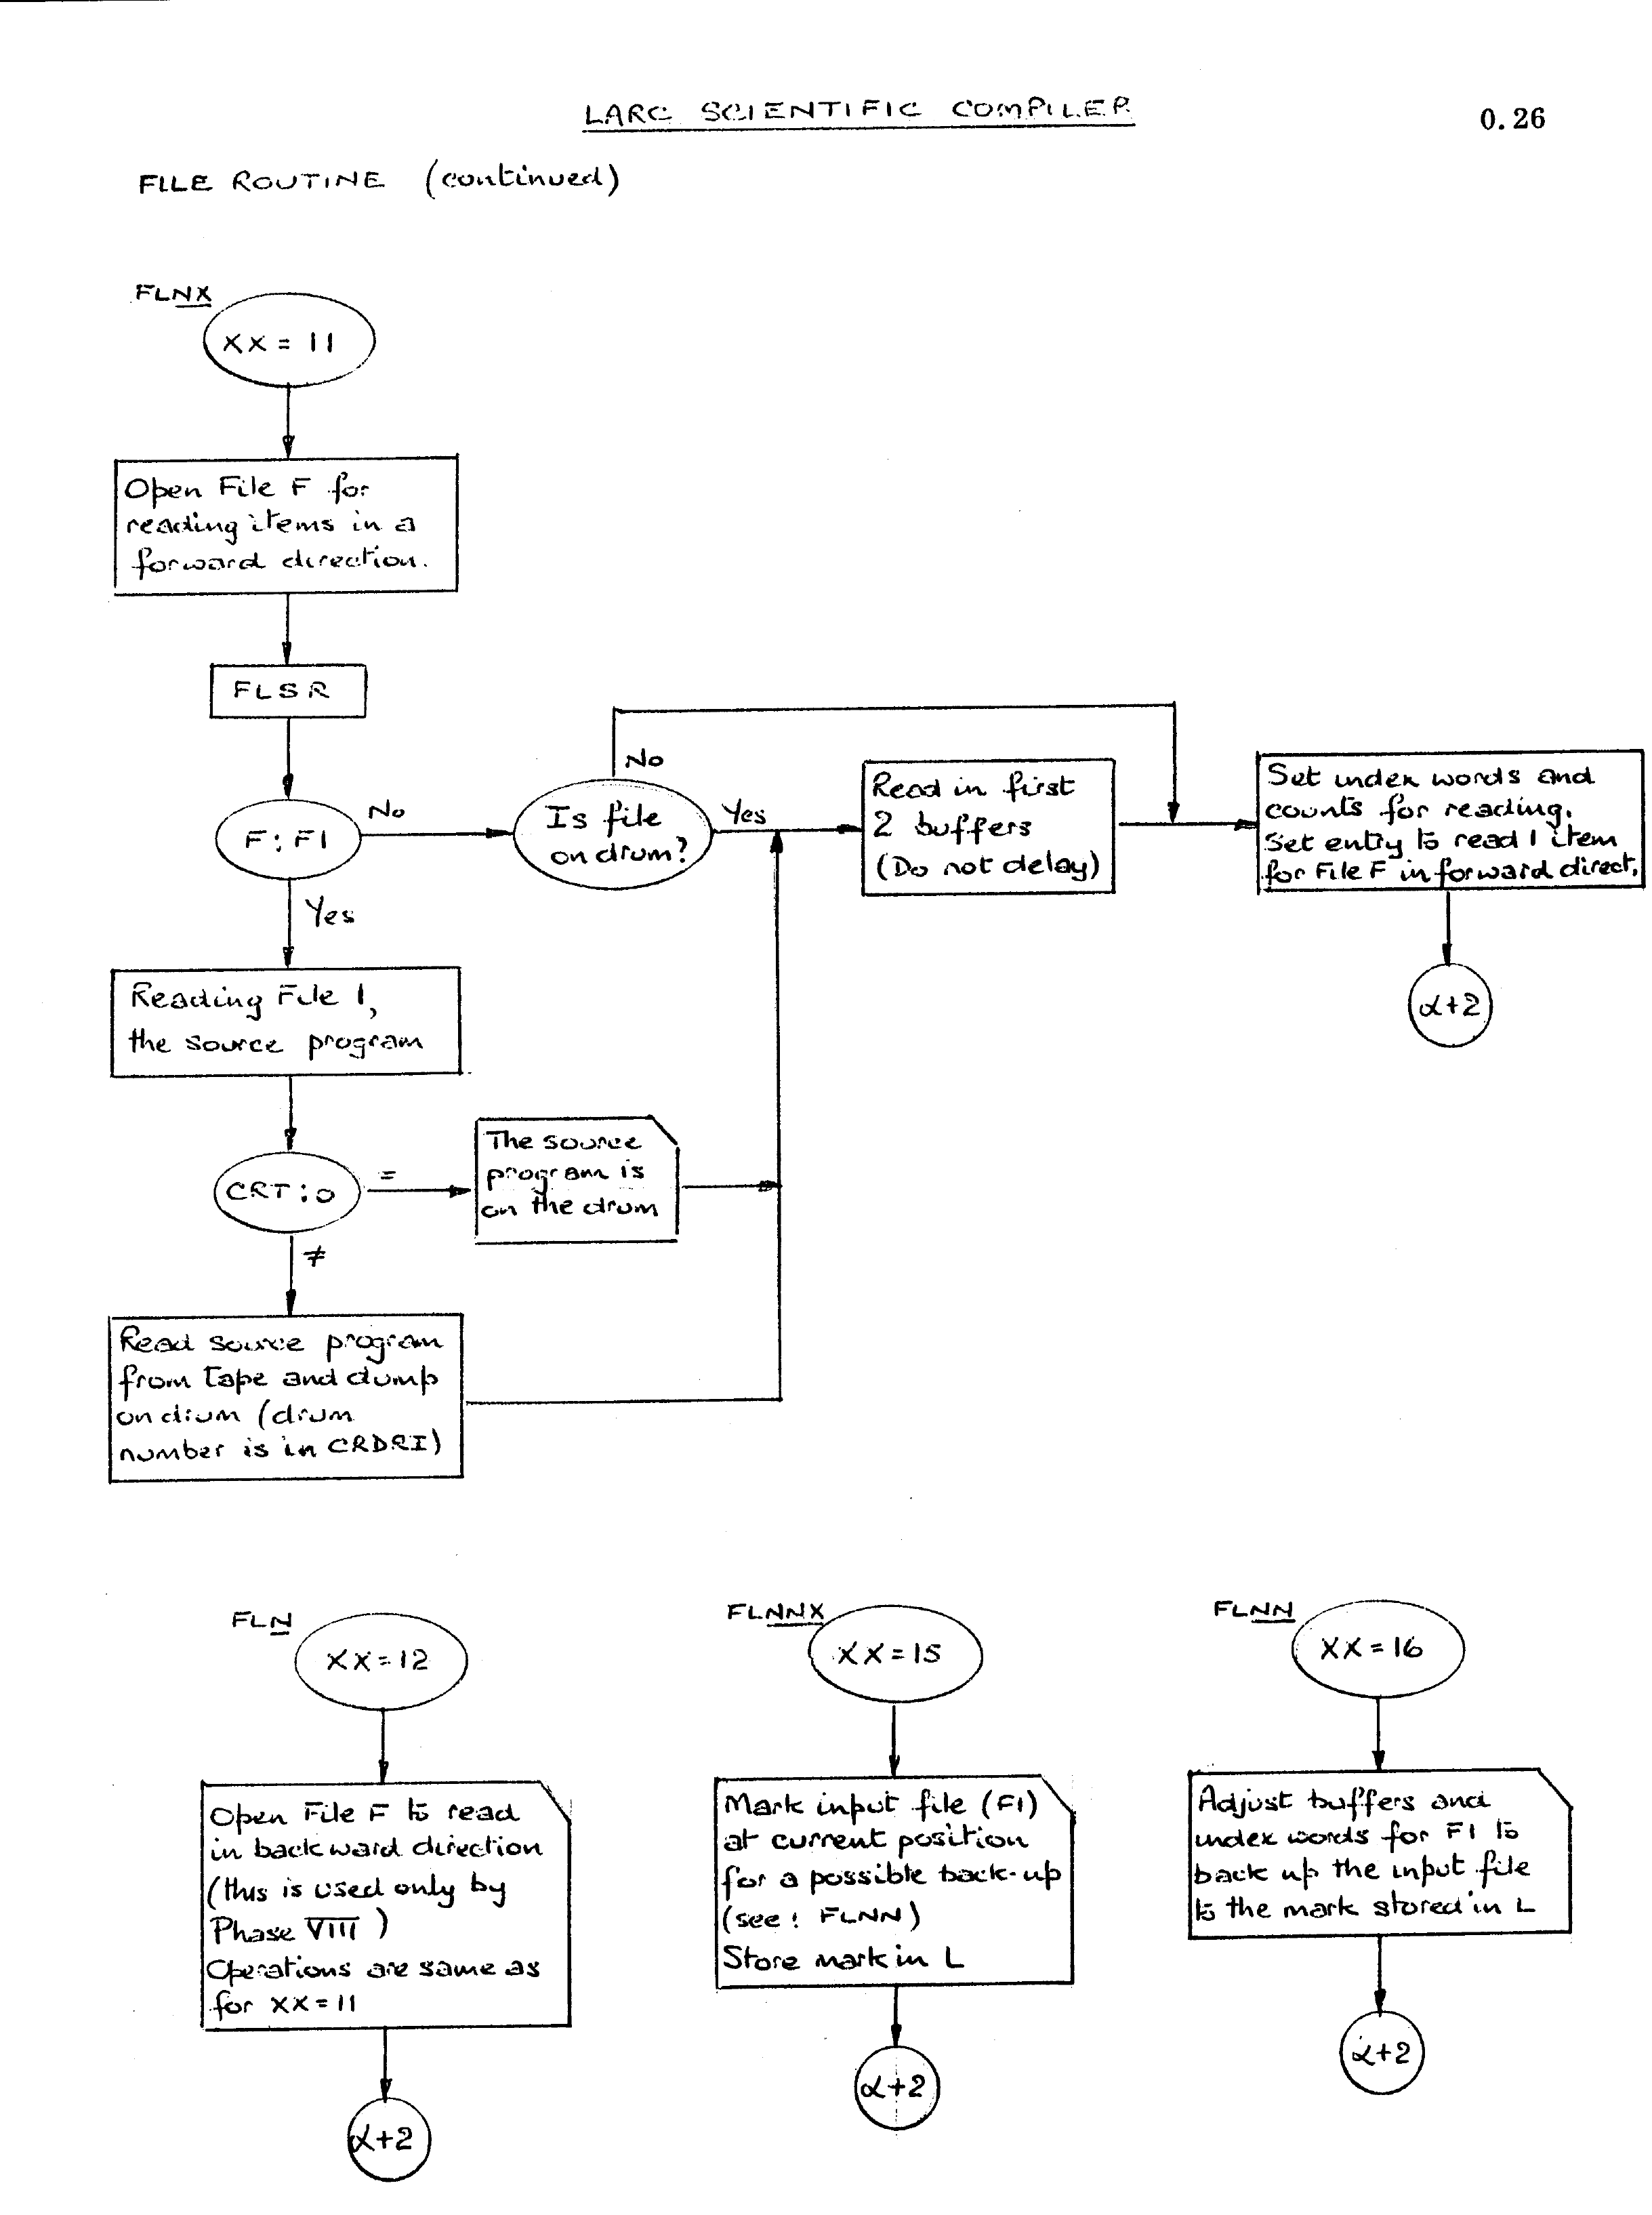 LARC SCIENTIFIC COMPILER
0.26
FILE ROUTINE (continued)
FLNX
XX = 11
Open File F for
reading items in a
forward direction.
FLSR
F : F1
No
Is file
on drum?
No
Yes
Read in first
2 buffers
(Do not delay)
Set index words and
counts for reading.
Set entry to read 1 item
for File F in forward direct.
α+2
Yes
Reading File 1,
the source program
CRT : 0
=
The source
program is
on the drum
≠
Read source program
from tape and dump
on drum (drum
number is in CRDRI)
FLN
XX = 12
Open File F to read
in backward direction
(this is used only by
Phase VIII)
Operations are same as
for XX = 11
α+2
FLNNX
XX = 15
Mark input file (F1)
at current position
for a possible back-up
(see : FLNN)
Store mark in L
α+2
FLNN
XX = 16
Adjust buffers and
index words for F1 to
back up the input file
to the mark stored in L
α+2